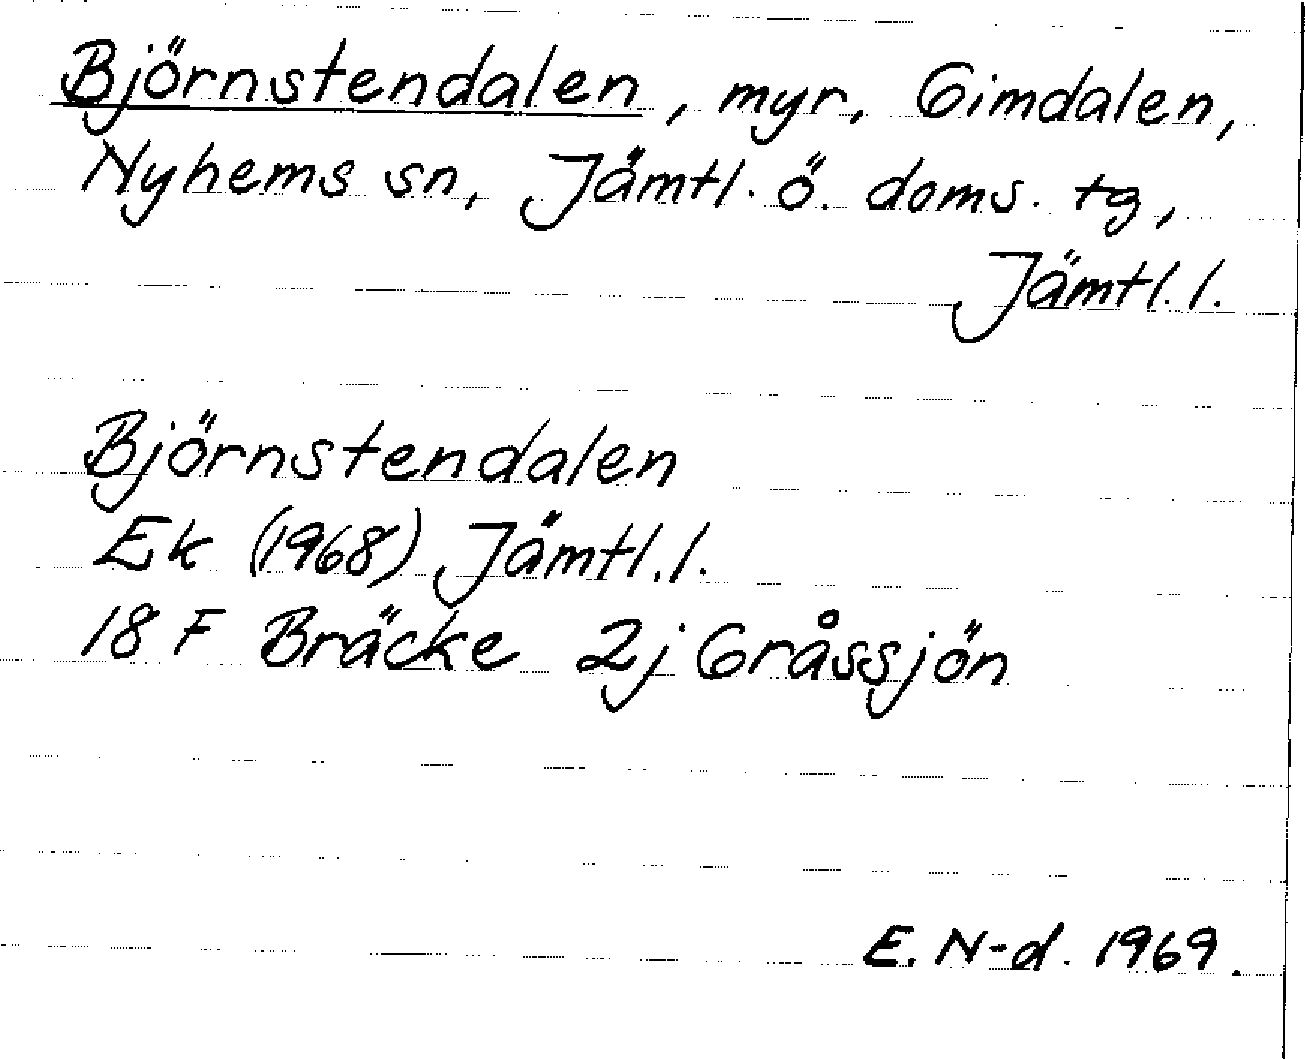 Björnstendalen, myr, Gimdalen,
Nyhems sn, Jämtl. ö. doms. tg,
Jämtl. l.
Björnstendalen
Ek (1968) Jämtl. l.
18 F Bräcke 2j Gråssjön
E. N-d. 1969.